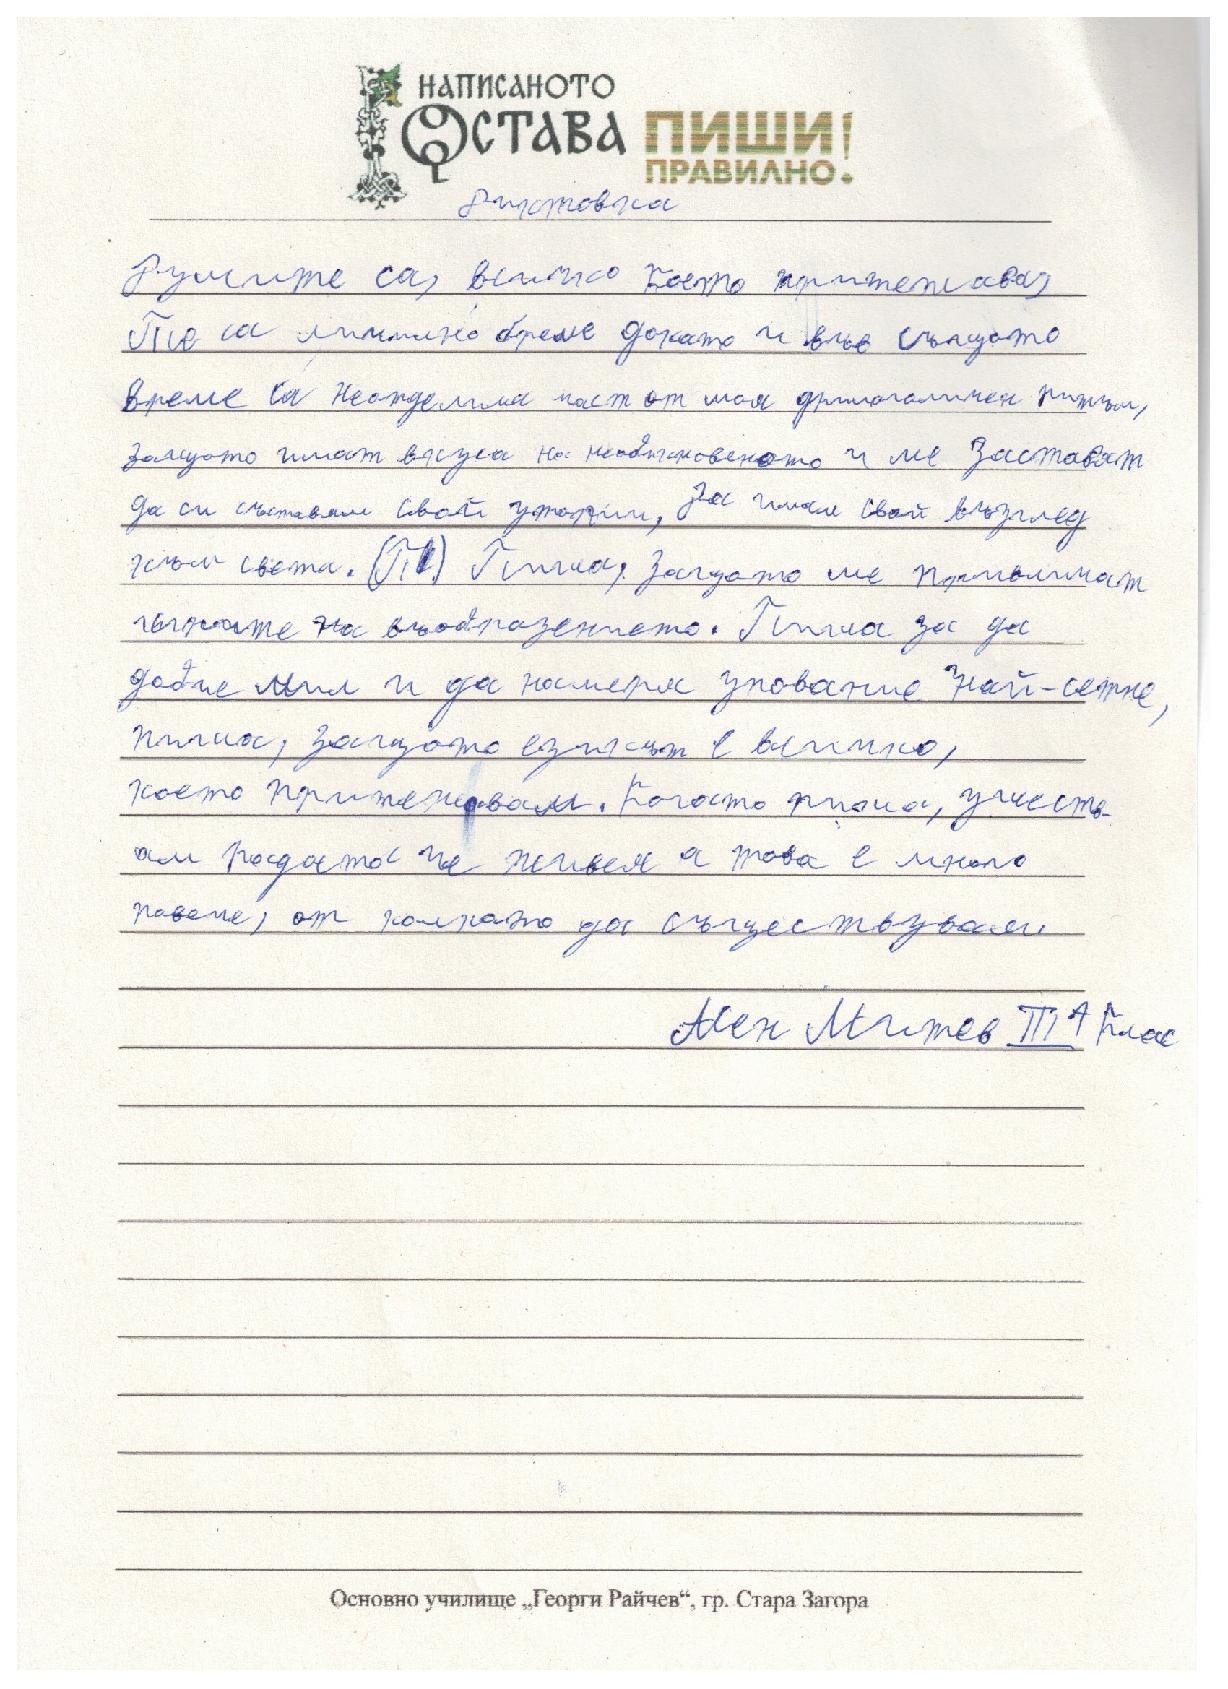 НАПИСАНОТО
ОСТАВА ПИШИ
ПРАВИЛНО!
Диктовка
Думите са, всичко което притежава,
Те са време докато и във същото
време са неотделима част от моя,
защото имат вкуса на необикновеното и ме заставят
да си съставям свой утопии, За имам свой възглед
към света. Пиша, защото ме привличат
на въображението. Пиша за да
и да намеря упование най-сетне,
пиша, защото езикът е всичко,
което притежавам. Когато пиша, участв-
ам че живея а това е много
повече, от колкото да съществувам.
Ален Митев III А клас
Основно училище „Георги Райчев“, гр. Стара Загора